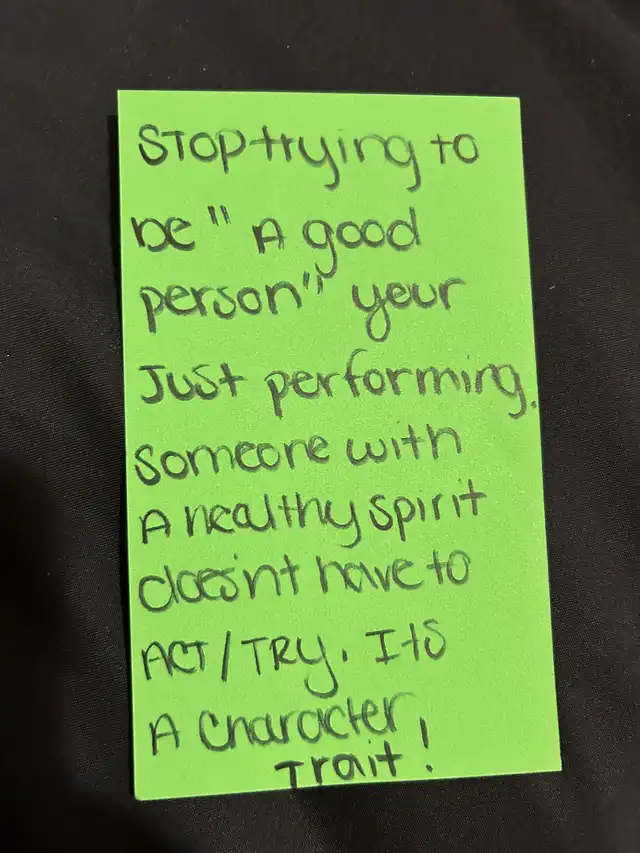 STOP trying to
be "A good
person" your
Just performing.
someone with
A healthy spirit
doesn't have to
ACT/TRY. Its
A character
Trait!